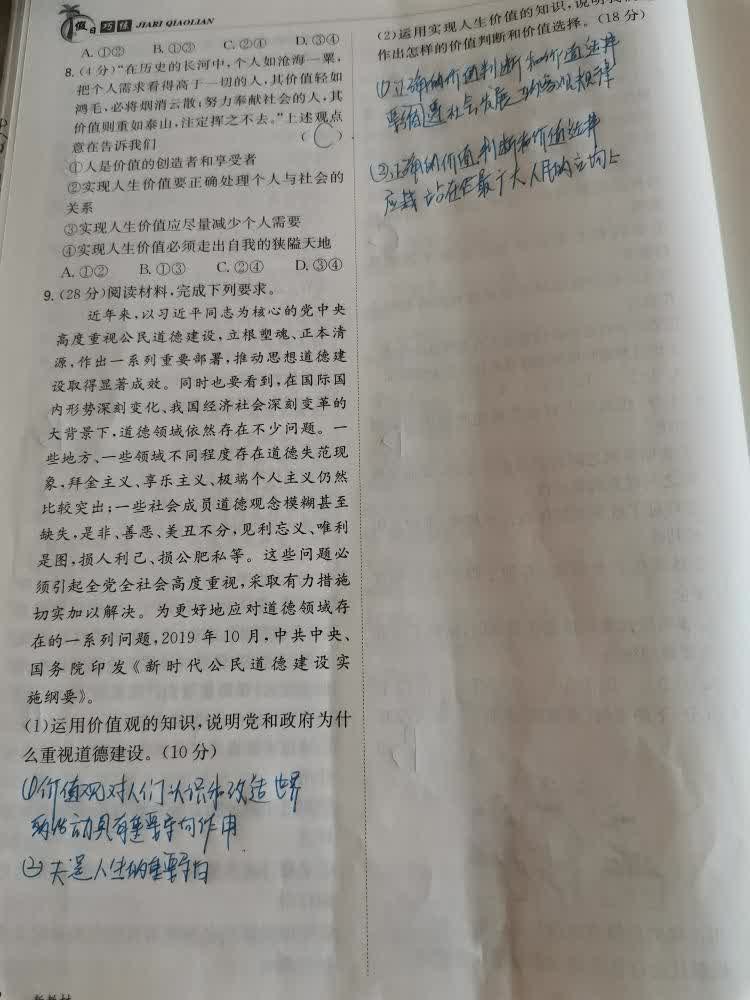 假日巧练 JIARI QIAOLIAN
A.①② B.①③ C.②④ D.③④
8.(4分)“在历史的长河中,个人如沧海一粟,
把个人需求看得高于一切的人,其价值轻如
鸿毛,必将烟消云散;努力奉献社会的人,其
价值则重如泰山,注定挥之不去。”上述观点
意在告诉我们 ( C )
①人是价值的创造者和享受者
②实现人生价值要正确处理个人与社会的
关系
③实现人生价值应尽量减少个人需要
④实现人生价值必须走出自我的狭隘天地
A.①② B.①③ C.②④ D.③④
9.(28分)阅读材料,完成下列要求。
近年来,以习近平同志为核心的党中央
高度重视公民道德建设,立根塑魂、正本清
源,作出一系列重要部署,推动思想道德建
设取得显著成效。同时也要看到,在国际国
内形势深刻变化、我国经济社会深刻变革的
大背景下,道德领域依然存在不少问题。一
些地方、一些领域不同程度存在道德失范现
象,拜金主义、享乐主义、极端个人主义仍然
比较突出;一些社会成员道德观念模糊甚至
缺失,是非、善恶、美丑不分,见利忘义、唯利
是图,损人利己、损公肥私等。这些问题必
须引起全党全社会高度重视,采取有力措施
切实加以解决。为更好地应对道德领域存
在的一系列问题,2019年10月,中共中央、
国务院印发《新时代公民道德建设实
施纲要》。
(1)运用价值观的知识,说明党和政府为什
么重视道德建设。(10分)
①价值观对人们认识和改造世界
的活动具有重要导向作用
②夫是人生的重要导向
(2)运用实现人生价值的知识,说明我们
作出怎样的价值判断和价值选择。(18分)
①正确的价值判断和价值选择
要遵社会发展的客观规律
②正确的价值判断和价值选择
应 站在最广大人民的立向上